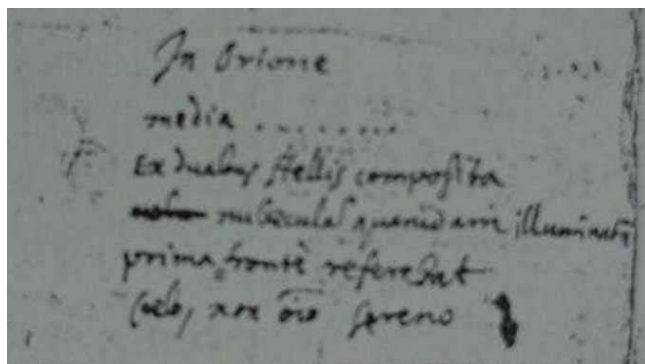 In Orione
media ........
Ex duabus stellis composita
nubeculam quamdam illuminatã
prima fronte referebat
Cœlo, non õio sereno